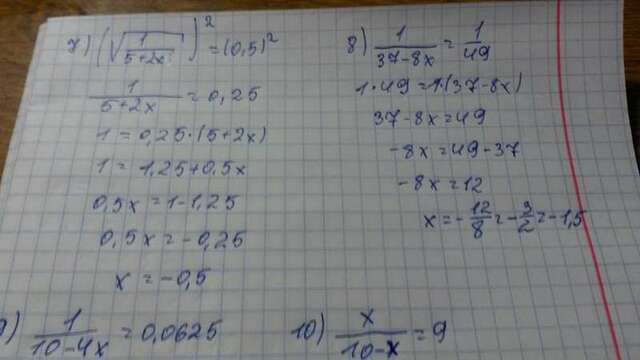 7) (√(1/(5+2x)))² = (0,5)²
1/(5+2x) = 0,25
1 = 0,25·(5+2x)
1 = 1,25+0,5x
0,5x = 1-1,25
0,5x = -0,25
x = -0,5
8) 1/(37-8x) = 1/49
1·49 = 1·(37-8x)
37-8x = 49
-8x = 49-37
-8x = 12
x = -12/8 = -3/2 = -1,5
9) 1/(10-4x) = 0,0625
10) x/(10-x) = 9